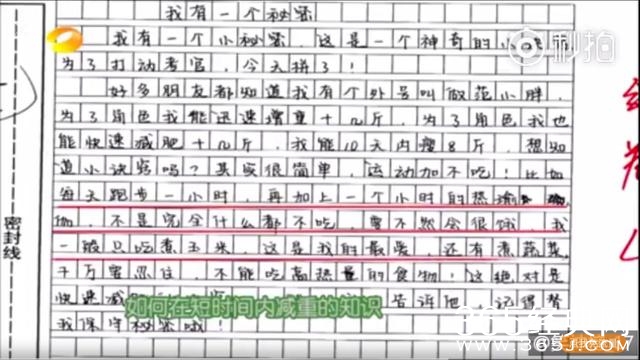 我有一个秘密
我有一个小秘密,这是一个神奇的小
秒拍
为了打动考官,今天拼了!
好多朋友都知道我有个外号叫做范小胖,
为了角色我能迅速增重十几斤,为了角色我也
能快速减肥十几斤,我能10天内瘦8斤,想知
道小诀窍吗?其实很简单,运动加不吃!比如
每天跑步一小时,再加上一个小时的热瑜
伽,不是完全什么都不吃,要不然会很饿,我
一般只吃煮玉米,这是我的最爱,还有煮蔬菜,
千万要忍住,不能吃高热量的食物!这绝对是
快速减
如何在短时间内减重的知识
告诉他,记得替
我保守秘密哦!
密封线
www.365J.com